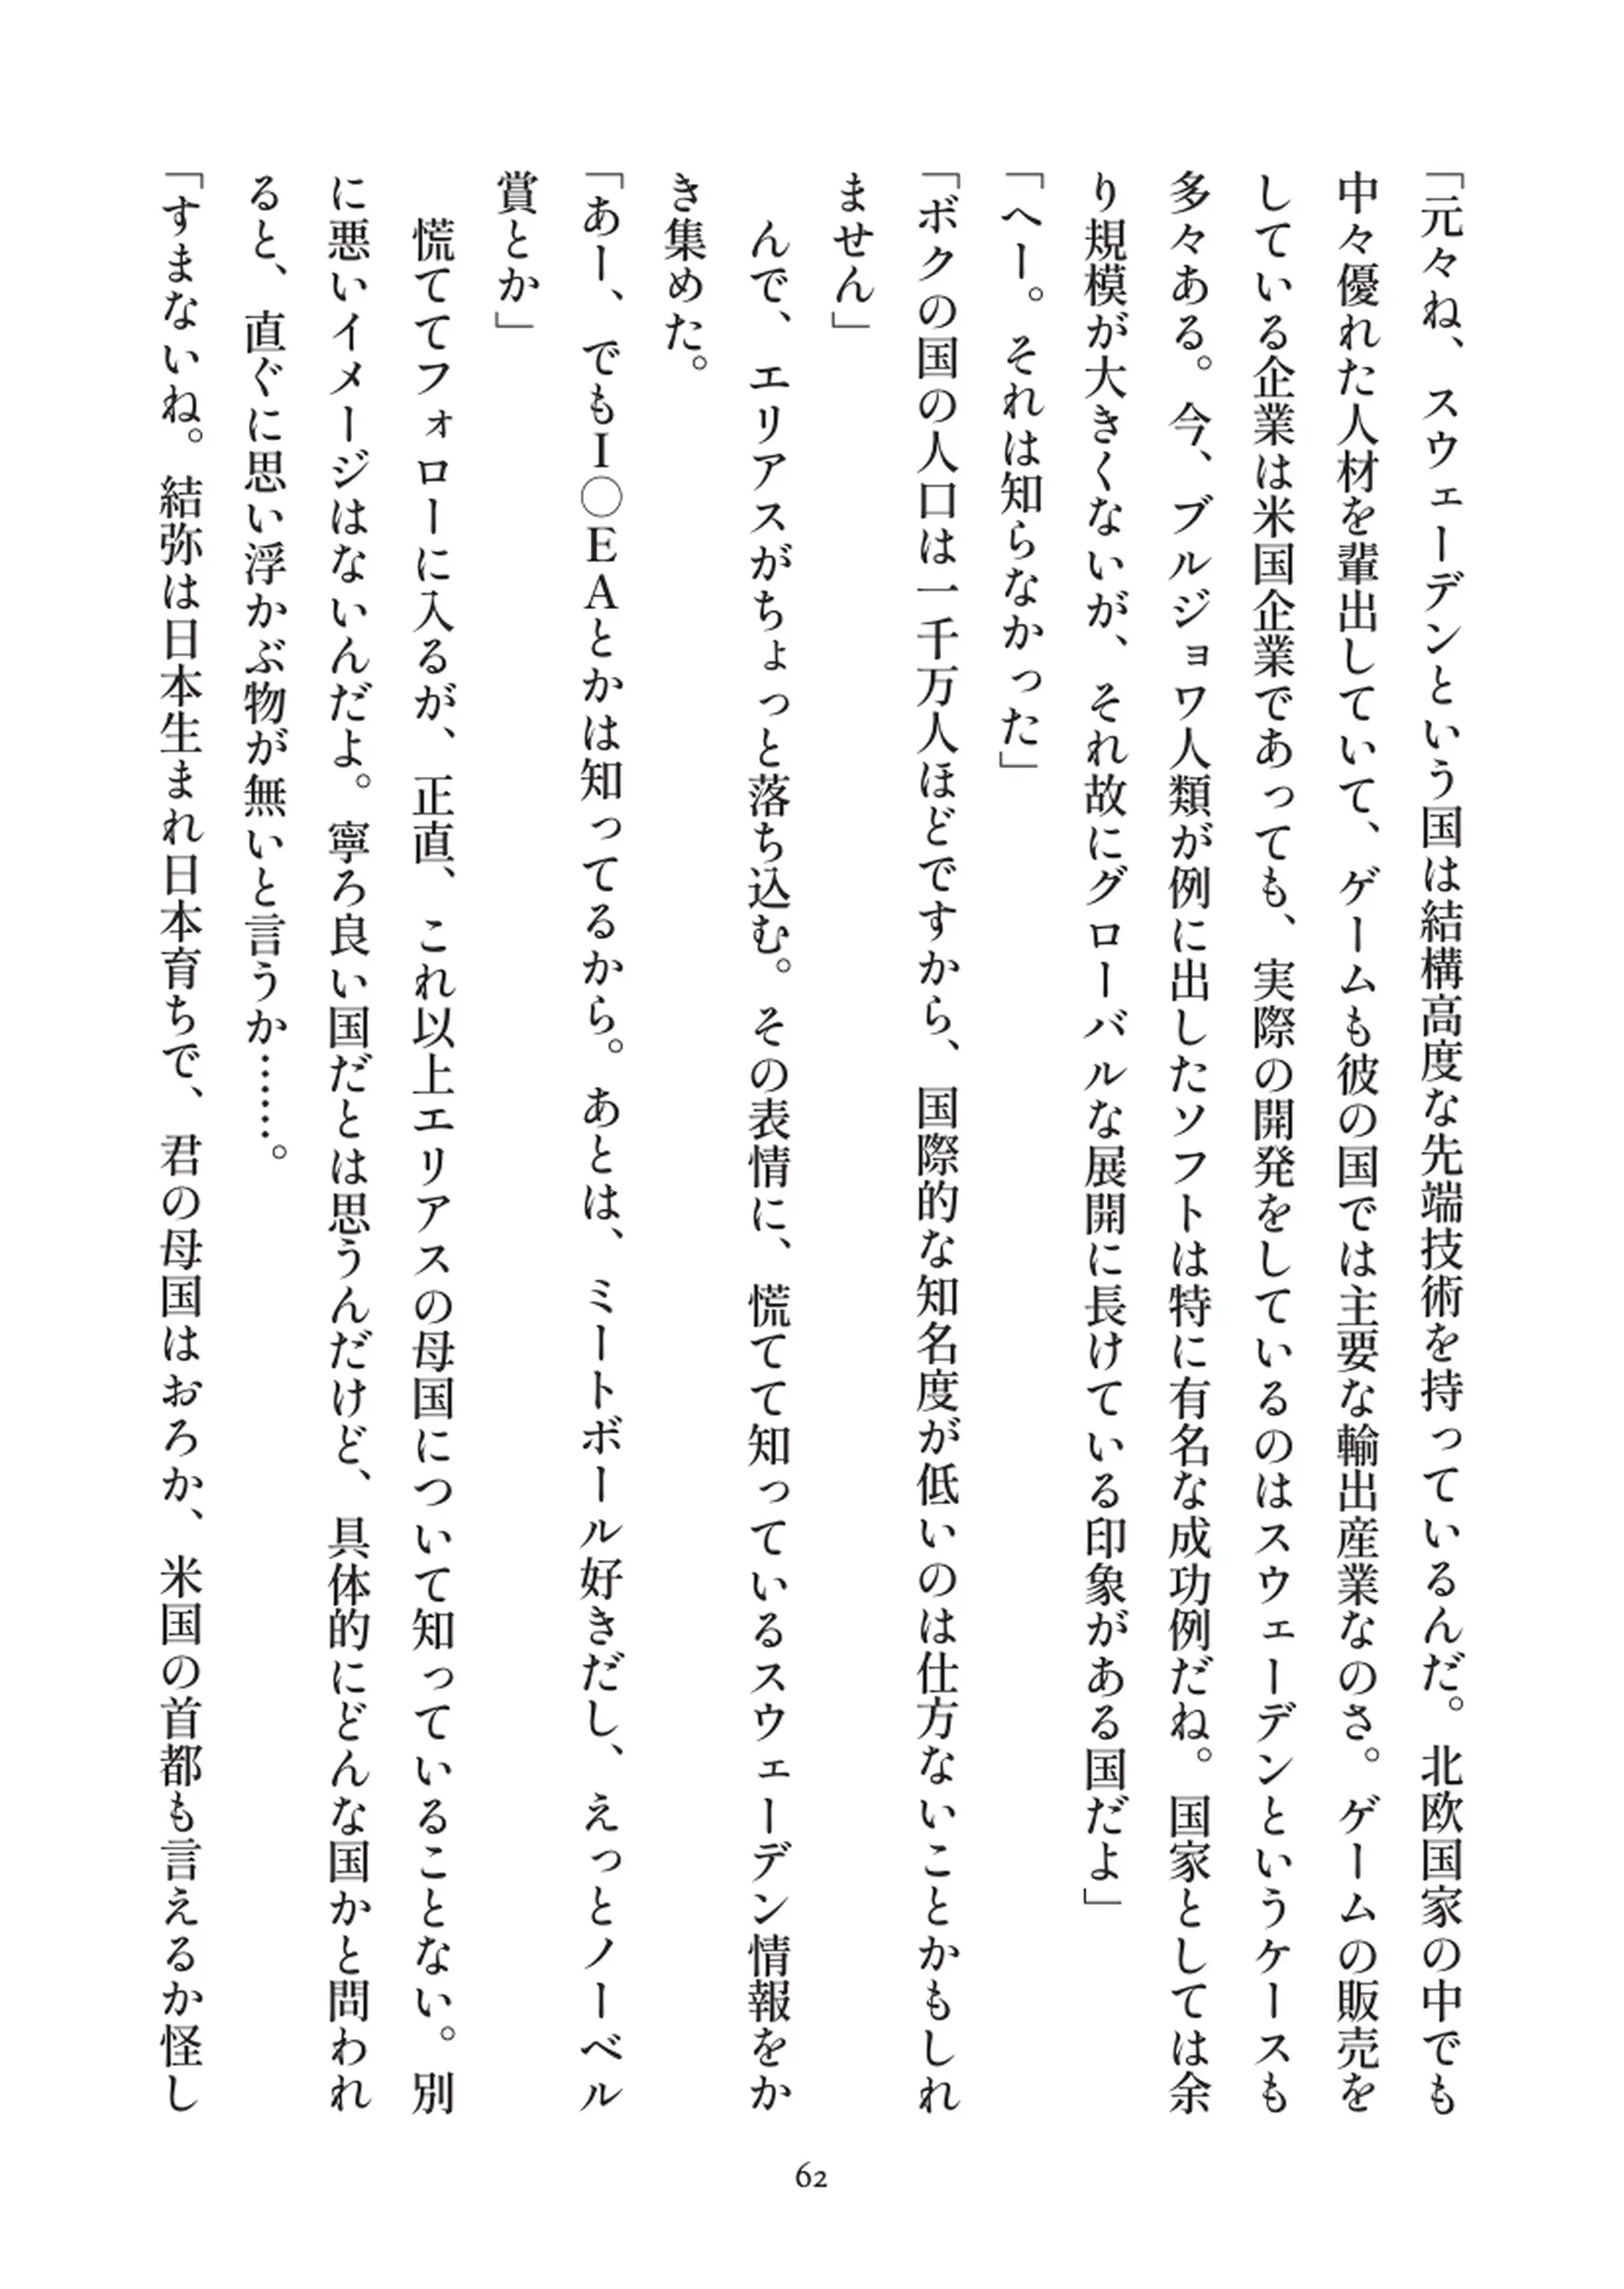 「元々ね、スウェーデンという国は結構高度な先端技術を持っているんだ。北欧国家の中でも
中々優れた人材を輩出していて、ゲームも彼の国では主要な輸出産業なのさ。ゲームの販売を
している企業は米国企業であっても、実際の開発をしているのはスウェーデンというケースも
多々ある。今、ブルジョワ人類が例に出したソフトは特に有名な成功例だね。国家としては余
り規模が大きくないが、それ故にグローバルな展開に長けている印象がある国だよ」
「へー。それは知らなかった」
「ボクの国の人口は一千万人ほどですから、国際的な知名度が低いのは仕方ないことかもしれ
ません」
　んで、エリアスがちょっと落ち込む。その表情に、慌てて知っているスウェーデン情報をか
き集めた。
「あー、でもI〇EAとかは知ってるから。あとは、ミートボール好きだし、えっとノーベル
賞とか」
　慌ててフォローに入るが、正直、これ以上エリアスの母国について知っていることない。別
に悪いイメージはないんだよ。寧ろ良い国だとは思うんだけど、具体的にどんな国かと問われ
ると、直ぐに思い浮かぶ物が無いと言うか……。
「すまないね。結弥は日本生まれ日本育ちで、君の母国はおろか、米国の首都も言えるか怪し
62